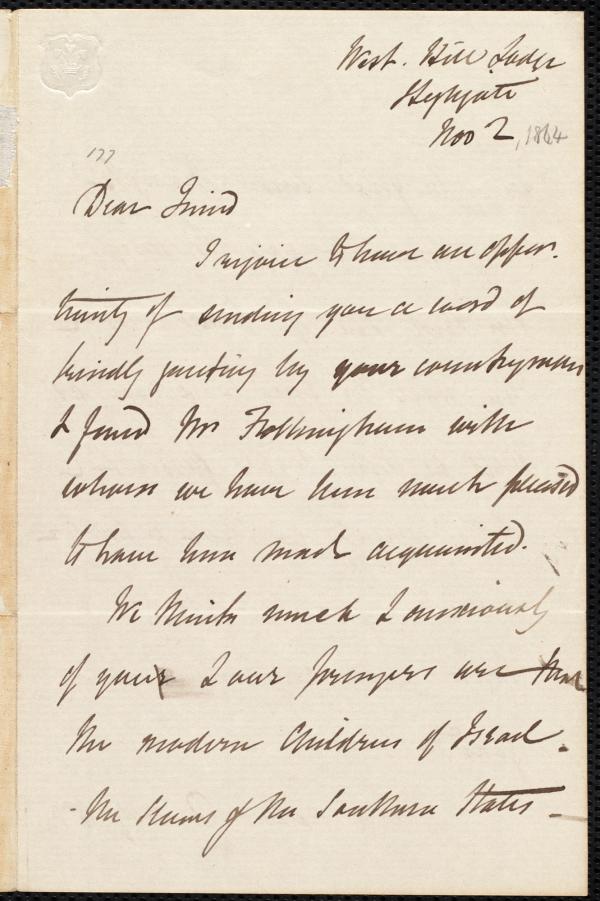 West. Hill Lodge
Highgate
Nov 2, 1864
177
Dear Friend
I rejoice to have an oppor-
tunity of sending you a word of
kindly greeting by your countryman
& friend Mr Follingham with
whom we have been much pleased
to have been made acquainted.
We think much & anxiously
of you & our prayers are that
the modern Children of Israel -
- the slaves of the Southern States -